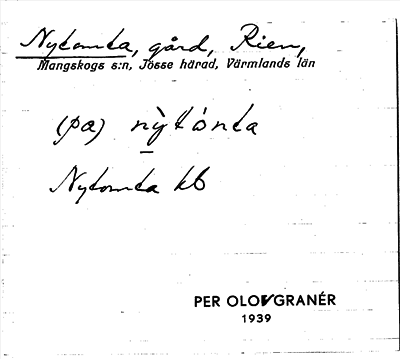 Nytomta, gård, Rien,
Mangskogs s:n, Jösse härad, Värmlands län
(pa) nỳtónta
Nytomta kb
PER OLOV GRANÉR
1939